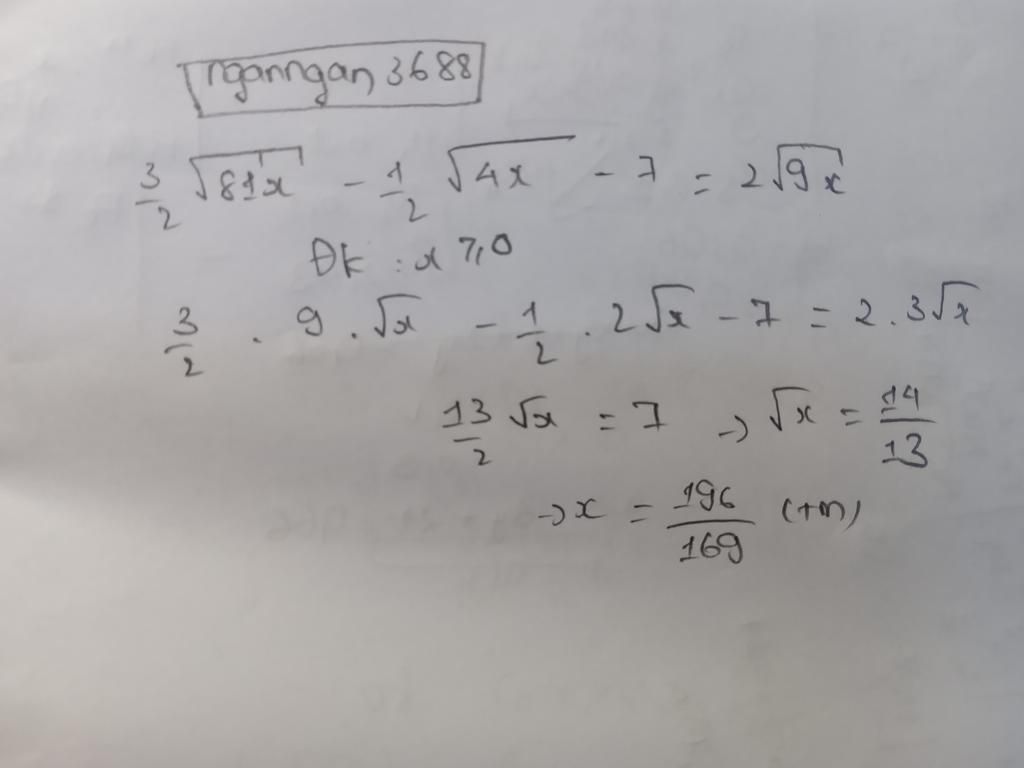 nganngan 3688
3/2 √81x - 1/2 √4x - 7 = 2√9x
Đk : x ≥ 0
3/2 . 9 . √x - 1/2 . 2√x - 7 = 2 . 3√x
13/2 √x = 7 → √x = 14/13
→ x = 196/169 (tm)